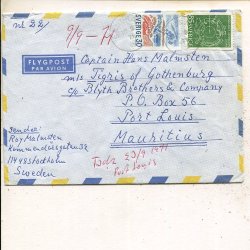 nr B 2/
9/9 - 71
FLYGPOST
PAR AVION
SVERIGE
Captain Hans Malmsten
m/s Tigris of Gothenburg
c/o Blyth Brothers & Company
P.O. Box 56
Port Louis
Mauritius
Sender:
Roy Malmsten
Kommendörsgatan 32
11448 Stockholm
Sweden
23/9 1971
Port Louis